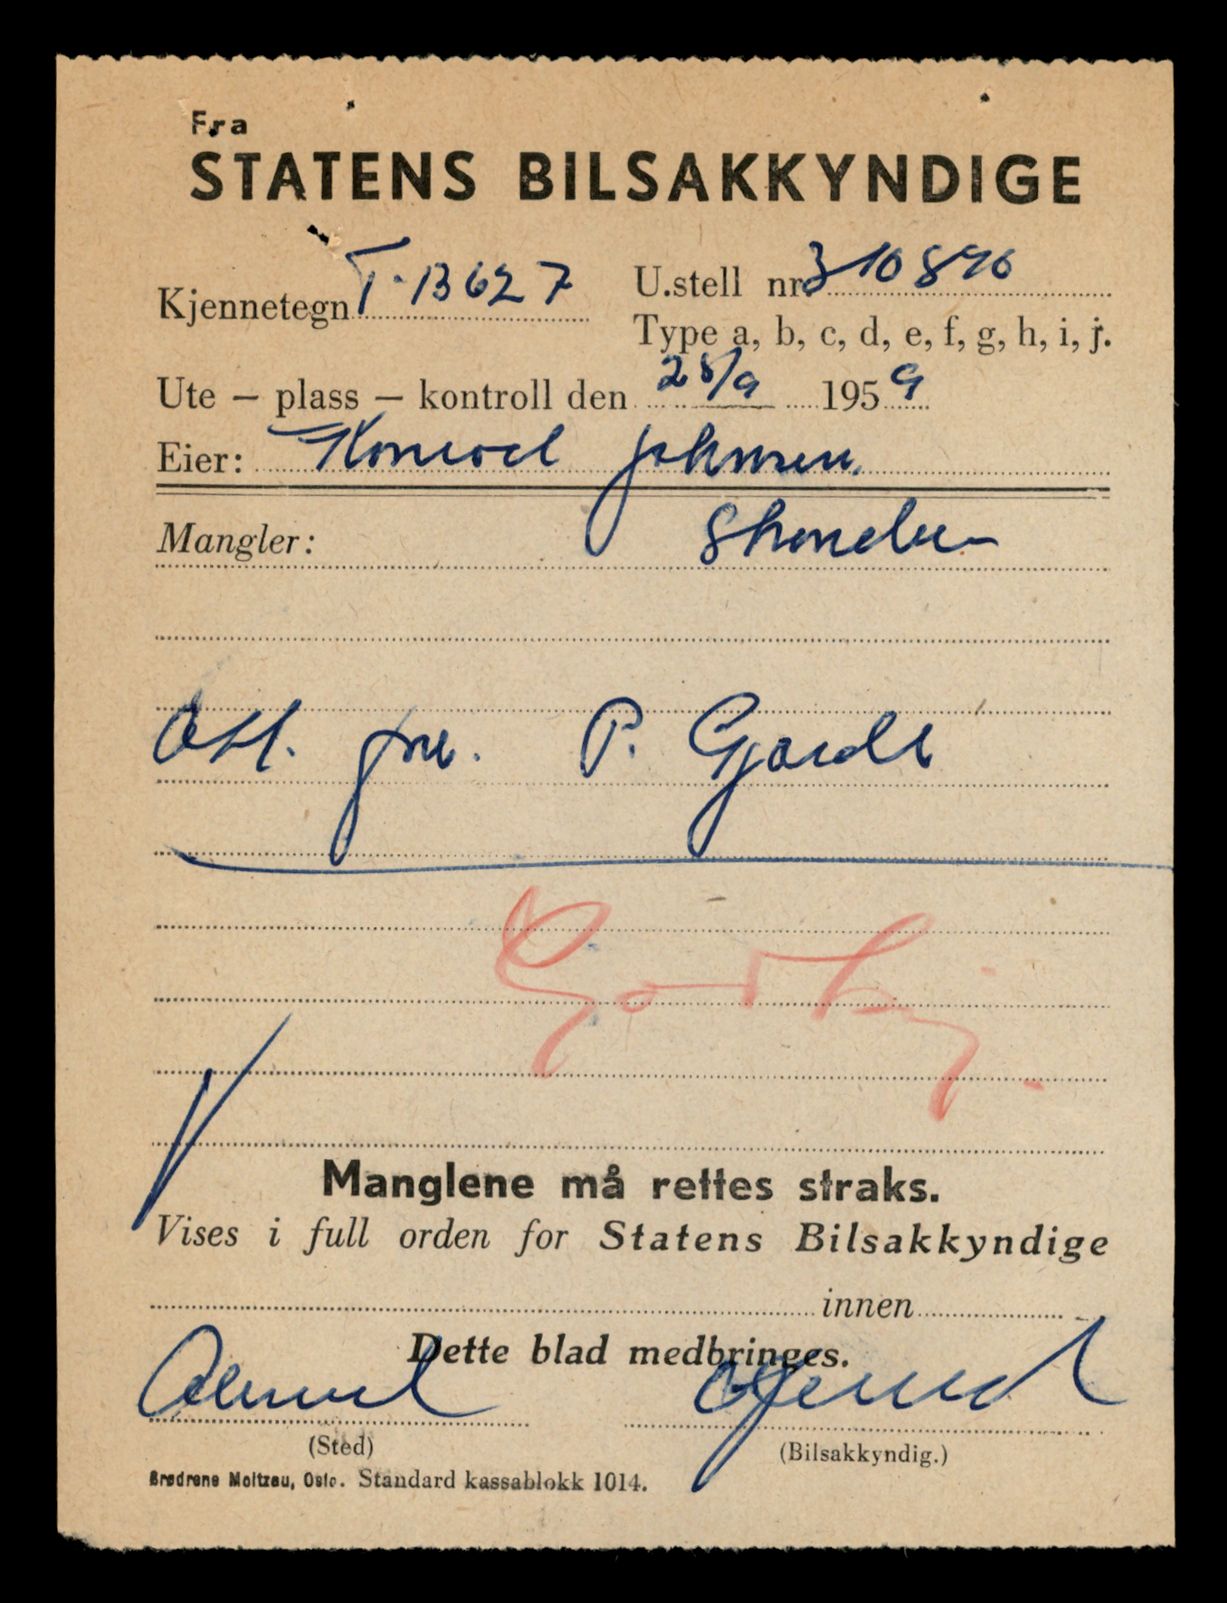 Fra
STATENS BILSAKKYNDIGE
Kjennetegn T-13627
U.stell nr. 310890
Type a, b, c, d, e, f, g, h, i, j.
Ute – plass – kontroll den 28/9 1959
Eier: Konrad Johnsen.
Mangler:
P. Gjærde
Manglene må rettes straks.
Vises i full orden for Statens Bilsakkyndige
innen
Dette blad medbringes.
(Sted)
(Bilsakkyndig.)
Brødrene Moltzau, Oslo. Standard kassablokk 1014.